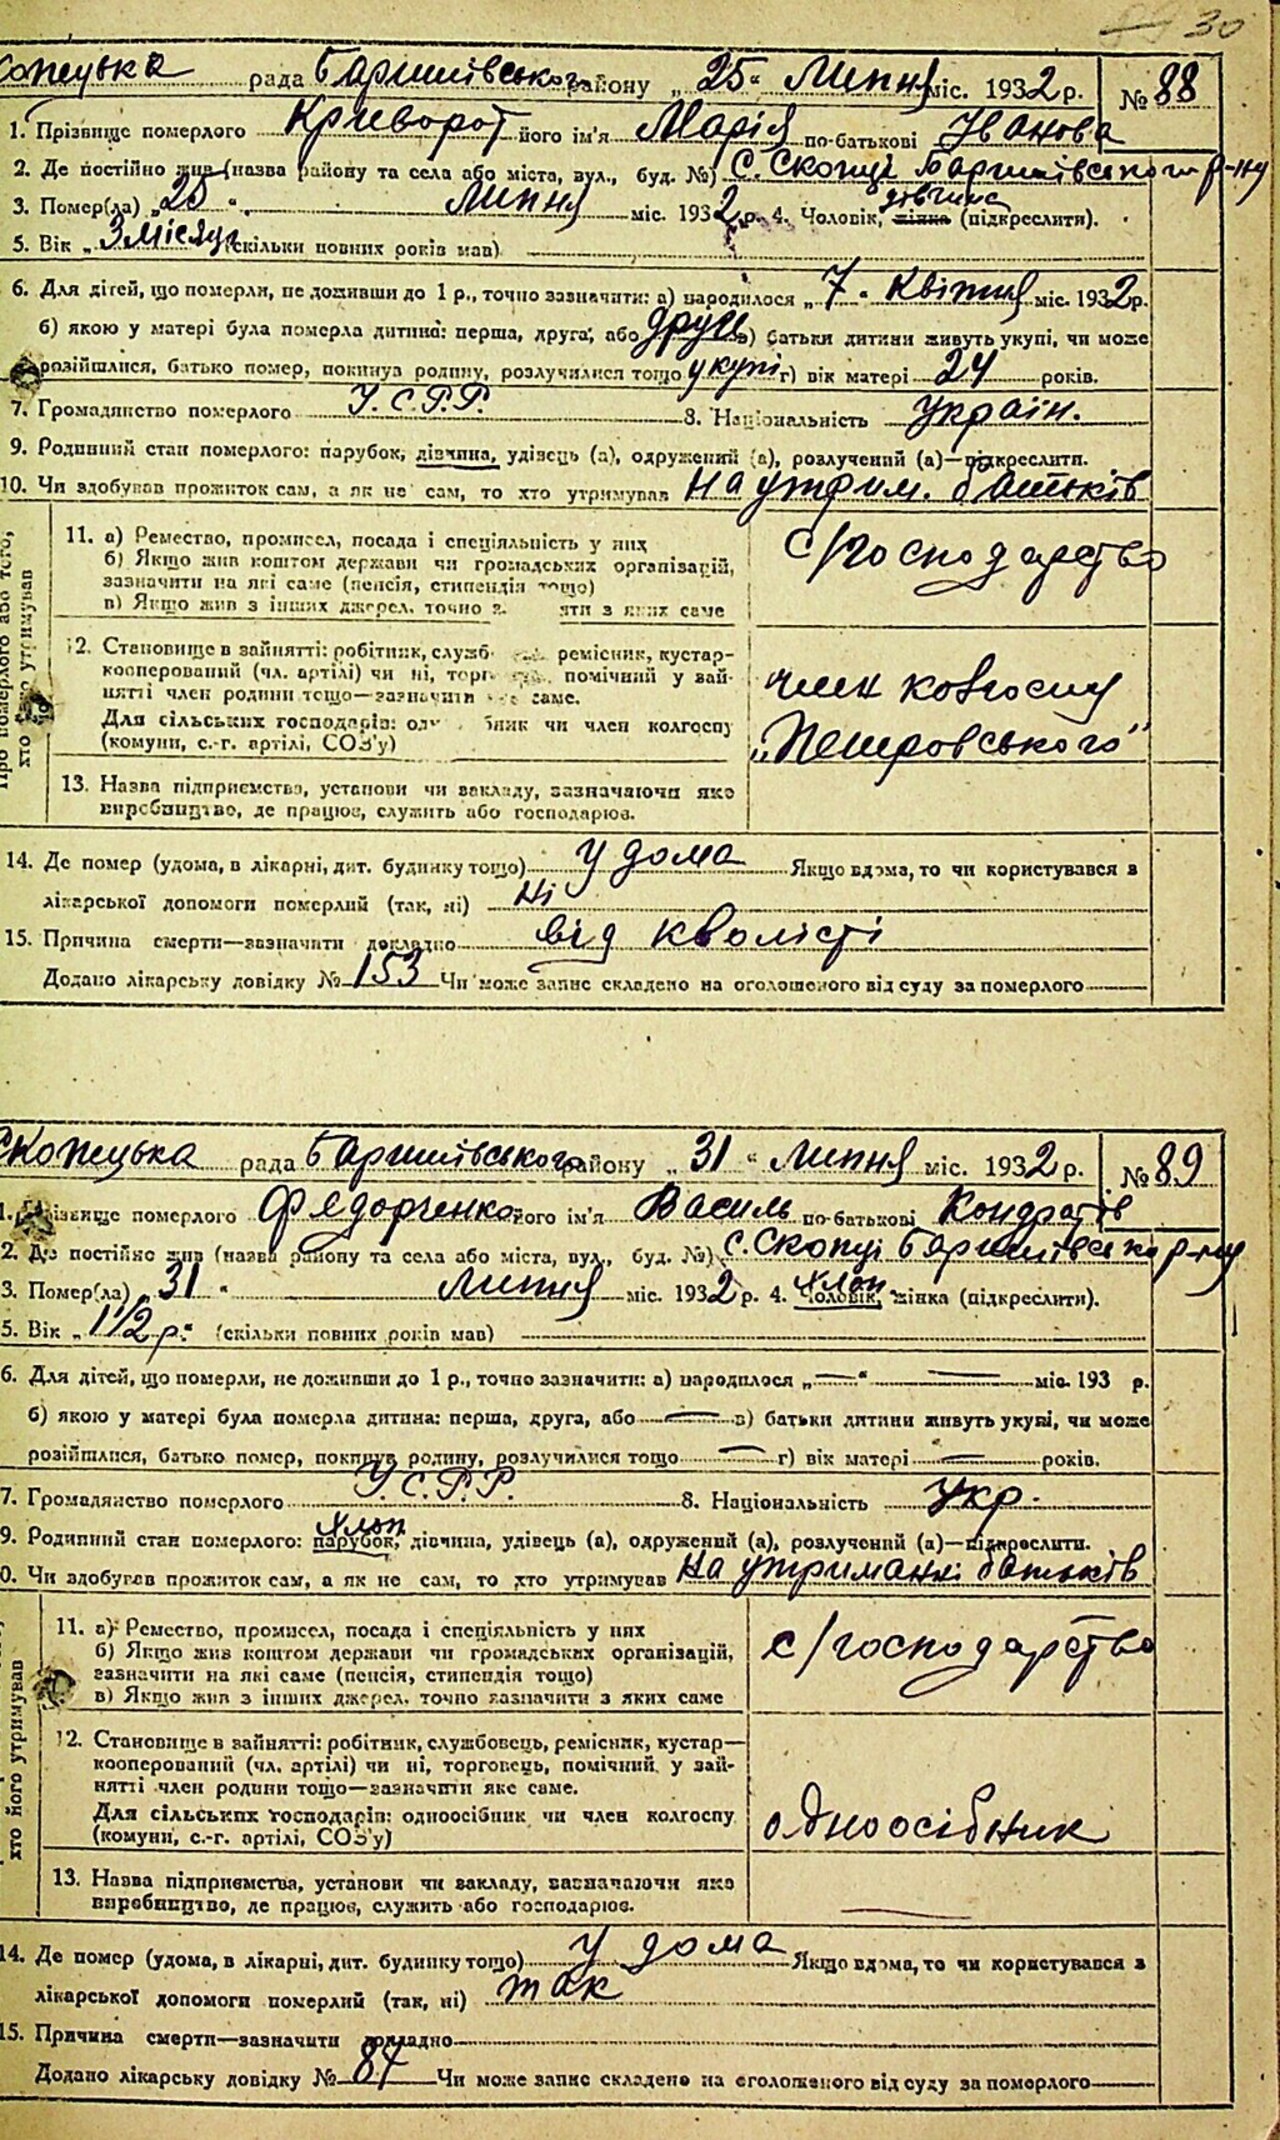 30
Скопецька рада Баришівського району „25“ Липня міс. 1932 р. № 88
1. Прізвище померлого Криворот його ім'я Марія по-батькові Іванова
2. Де постійно жив (назва району та села або міста, вул., буд. №) С. Скопці Баришівського р-ну
3. Помер(ла) „25“ Липня міс. 1932 р. 4. Чоловік, жінка дівчина (підкреслити).
5. Вік „3 місяці (скільки повних років мав)
6. Для дітей, що померли, не доживши до 1 р., точно зазначити: а) народилося „7“ Квітня міс. 1932 р.
б) якою у матері була померла дитина: перша, друга, або друге в) батьки дитини живуть укупі, чи може
розійшлися, батько помер, покинув родину, розлучилися тощо укупі г) вік матері 24 років.
7. Громадянство померлого У.С.Р.Р. 8. Національність Україн.
9. Родинний стан померлого: парубок, дівчина, удівець (а), одружений (а), розлучений (а)—підкреслити.
10. Чи здобував прожиток сам, а як не сам, то хто утримував На утрим. батьків
Про померлого або того,
хто його утримував
11. а) Ремество, промисел, посада і спеціяльність у них с/господарство
б) Якщо жив коштом держави чи громадських організацій,
зазначити на які саме (пенсія, стипендія тощо)
в) Якщо жив з інших джерел, точно з яти з яких саме
12. Становище в зайнятті: робітник, служб ремісник, кустар-
кооперований (чл. артілі) чи ні, торг помічний у зай-
нятті член родини тощо—зазначити саме. член колгоспу
Для сільських господарів: од бник чи член колгоспу
(комуни, с.-г. артілі, СОЗ'у) „Петровського“
13. Назва підприємства, установи чи закладу, зазначаючи яке
виробництво, де працює, служить або господарює.
14. Де помер (удома, в лікарні, дит. будинку тощо) у дома Якщо вдома, то чи користувався з
лікарської допомоги померлий (так, ні) ні
15. Причина смерти—зазначити докладно від кволісті
Додано лікарську довідку № 153 Чи може запис складено на оголошеного від суду за померлого
Скопецька рада Баришівського району „31“ Липня міс. 1932 р. № 89
1. Прізвище померлого Федорченко його ім'я Василь по-батькові Кондратів
2. Де постійно жив (назва району та села або міста, вул., буд. №) с. Скопці Баришівсько р-ну
3. Помер(ла) „31“ Липня міс. 1932 р. 4. Чоловік, хлоп жінка (підкреслити).
5. Вік „1 1/2 р.“ (скільки повних років мав)
6. Для дітей, що померли, не доживши до 1 р., точно зазначити: а) народилося „—“ — міс. 193 р.
б) якою у матері була померла дитина: перша, друга, або — в) батьки дитини живуть укупі, чи може
розійшлися, батько помер, покинув родину, розлучилися тощо — г) вік матері — років.
7. Громадянство померлого У.С.Р.Р. 8. Національність Укр.
9. Родинний стан померлого: парубок, хлоп дівчина, удівець (а), одружений (а), розлучений (а)—підкреслити.
0. Чи здобував прожиток сам, а як не сам, то хто утримував На утриманні батьків
хто його утримував
11. а) Ремество, промисел, посада і спеціяльність у них с/господарство
б) Якщо жив коштом держави чи громадських організацій,
зазначити на які саме (пенсія, стипендія тощо)
в) Якщо жив з інших джерел, точно зазначити з яких саме
12. Становище в зайнятті: робітник, службовець, ремісник, кустар—
кооперований (чл. артілі) чи ні, торговець, помічний у зай-
нятті член родини тощо—зазначити яке саме.
Для сільських господарів: одноосібник чи член колгоспу одноосібник
(комуни, с.-г. артілі, СОЗ'у)
13. Назва підприємства, установи чи закладу, зазначаючи яке
виробництво, де працює, служить або господарює. —
14. Де помер (удома, в лікарні, дит. будинку тощо) у дома Якщо вдома, то чи користувався з
лікарської допомоги померлий (так, ні) так
15. Причина смерти—зазначити докладно
Додано лікарську довідку № 87 Чи може запис складено на оголошеного від суду за померлого